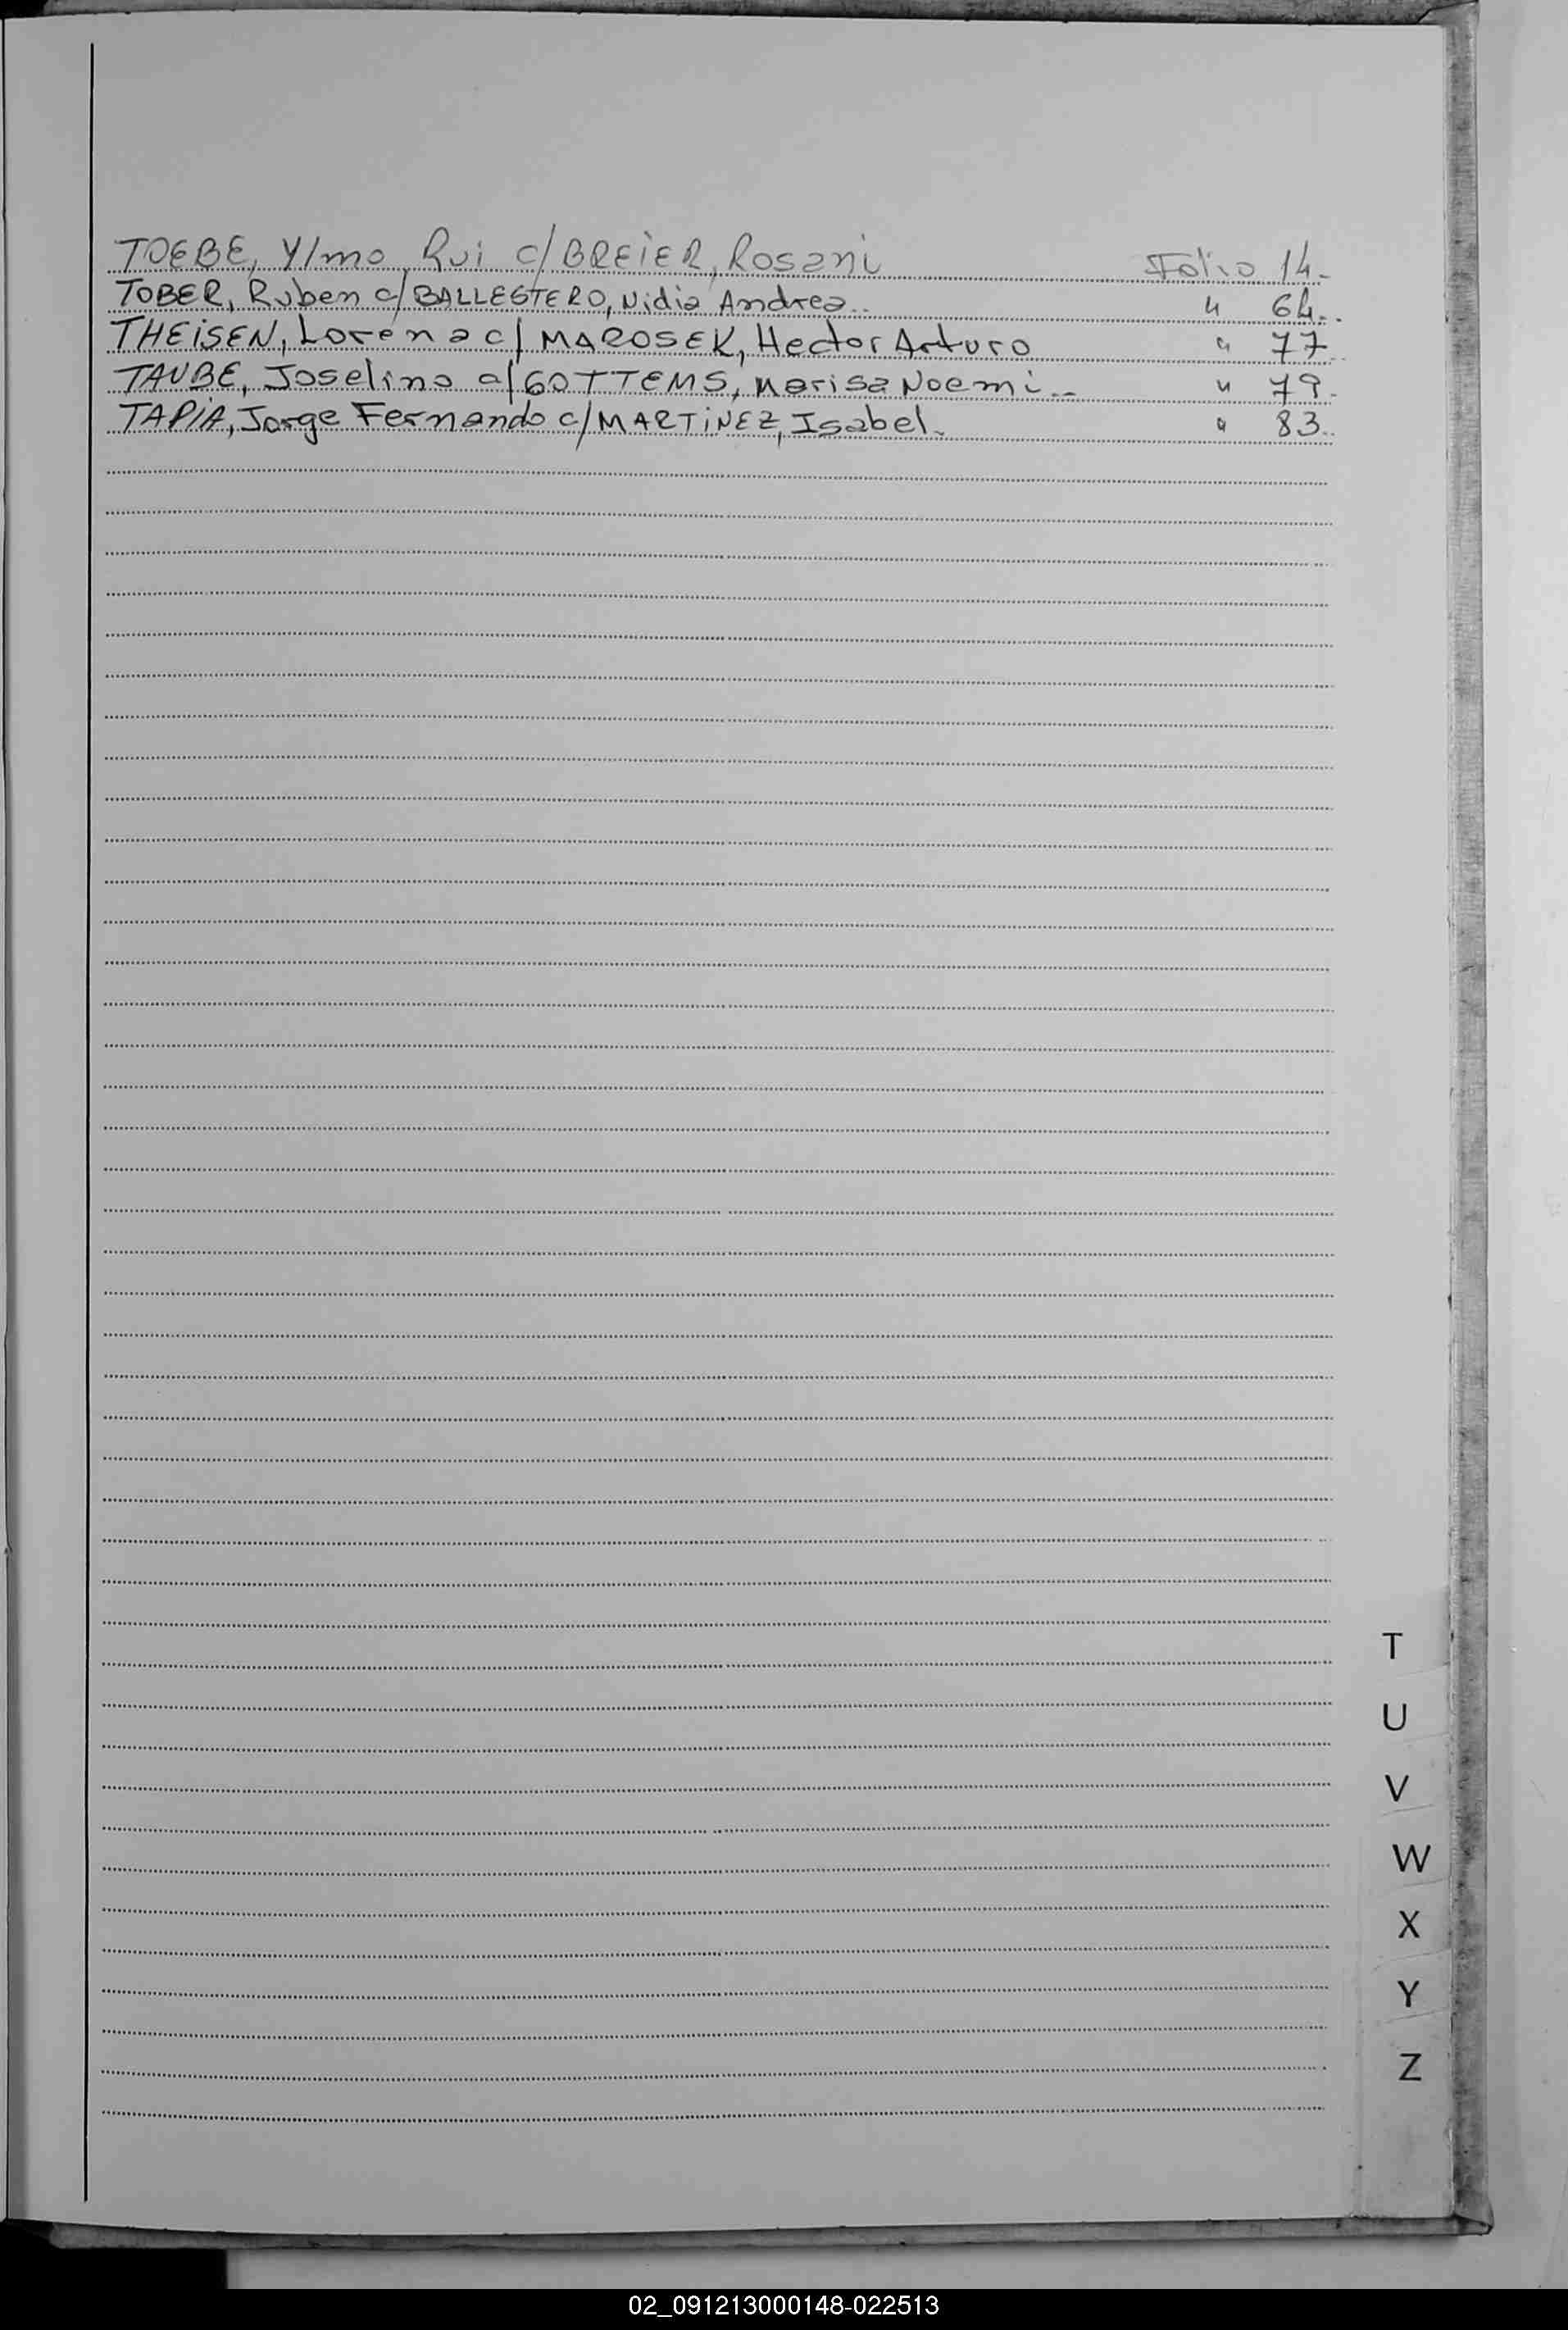 TOEBE, Ylmo Rui c/ BREiER, Rosani Folio 14.
TOBER, Ruben c/ BALLESTERO, Nidia Andrea.. " 64.
THEiSEN, Lorena c/ MAROSEK, Hector Arturo " 77
TAUBE, Joselino c/ GOTTEMS, Marisa Noemi.. " 79.
TAPiA, Jorge Fernando c/ MARTiNEZ, Isabel. " 83.
T
U
V
W
X
Y
Z
02_091213000148-022513